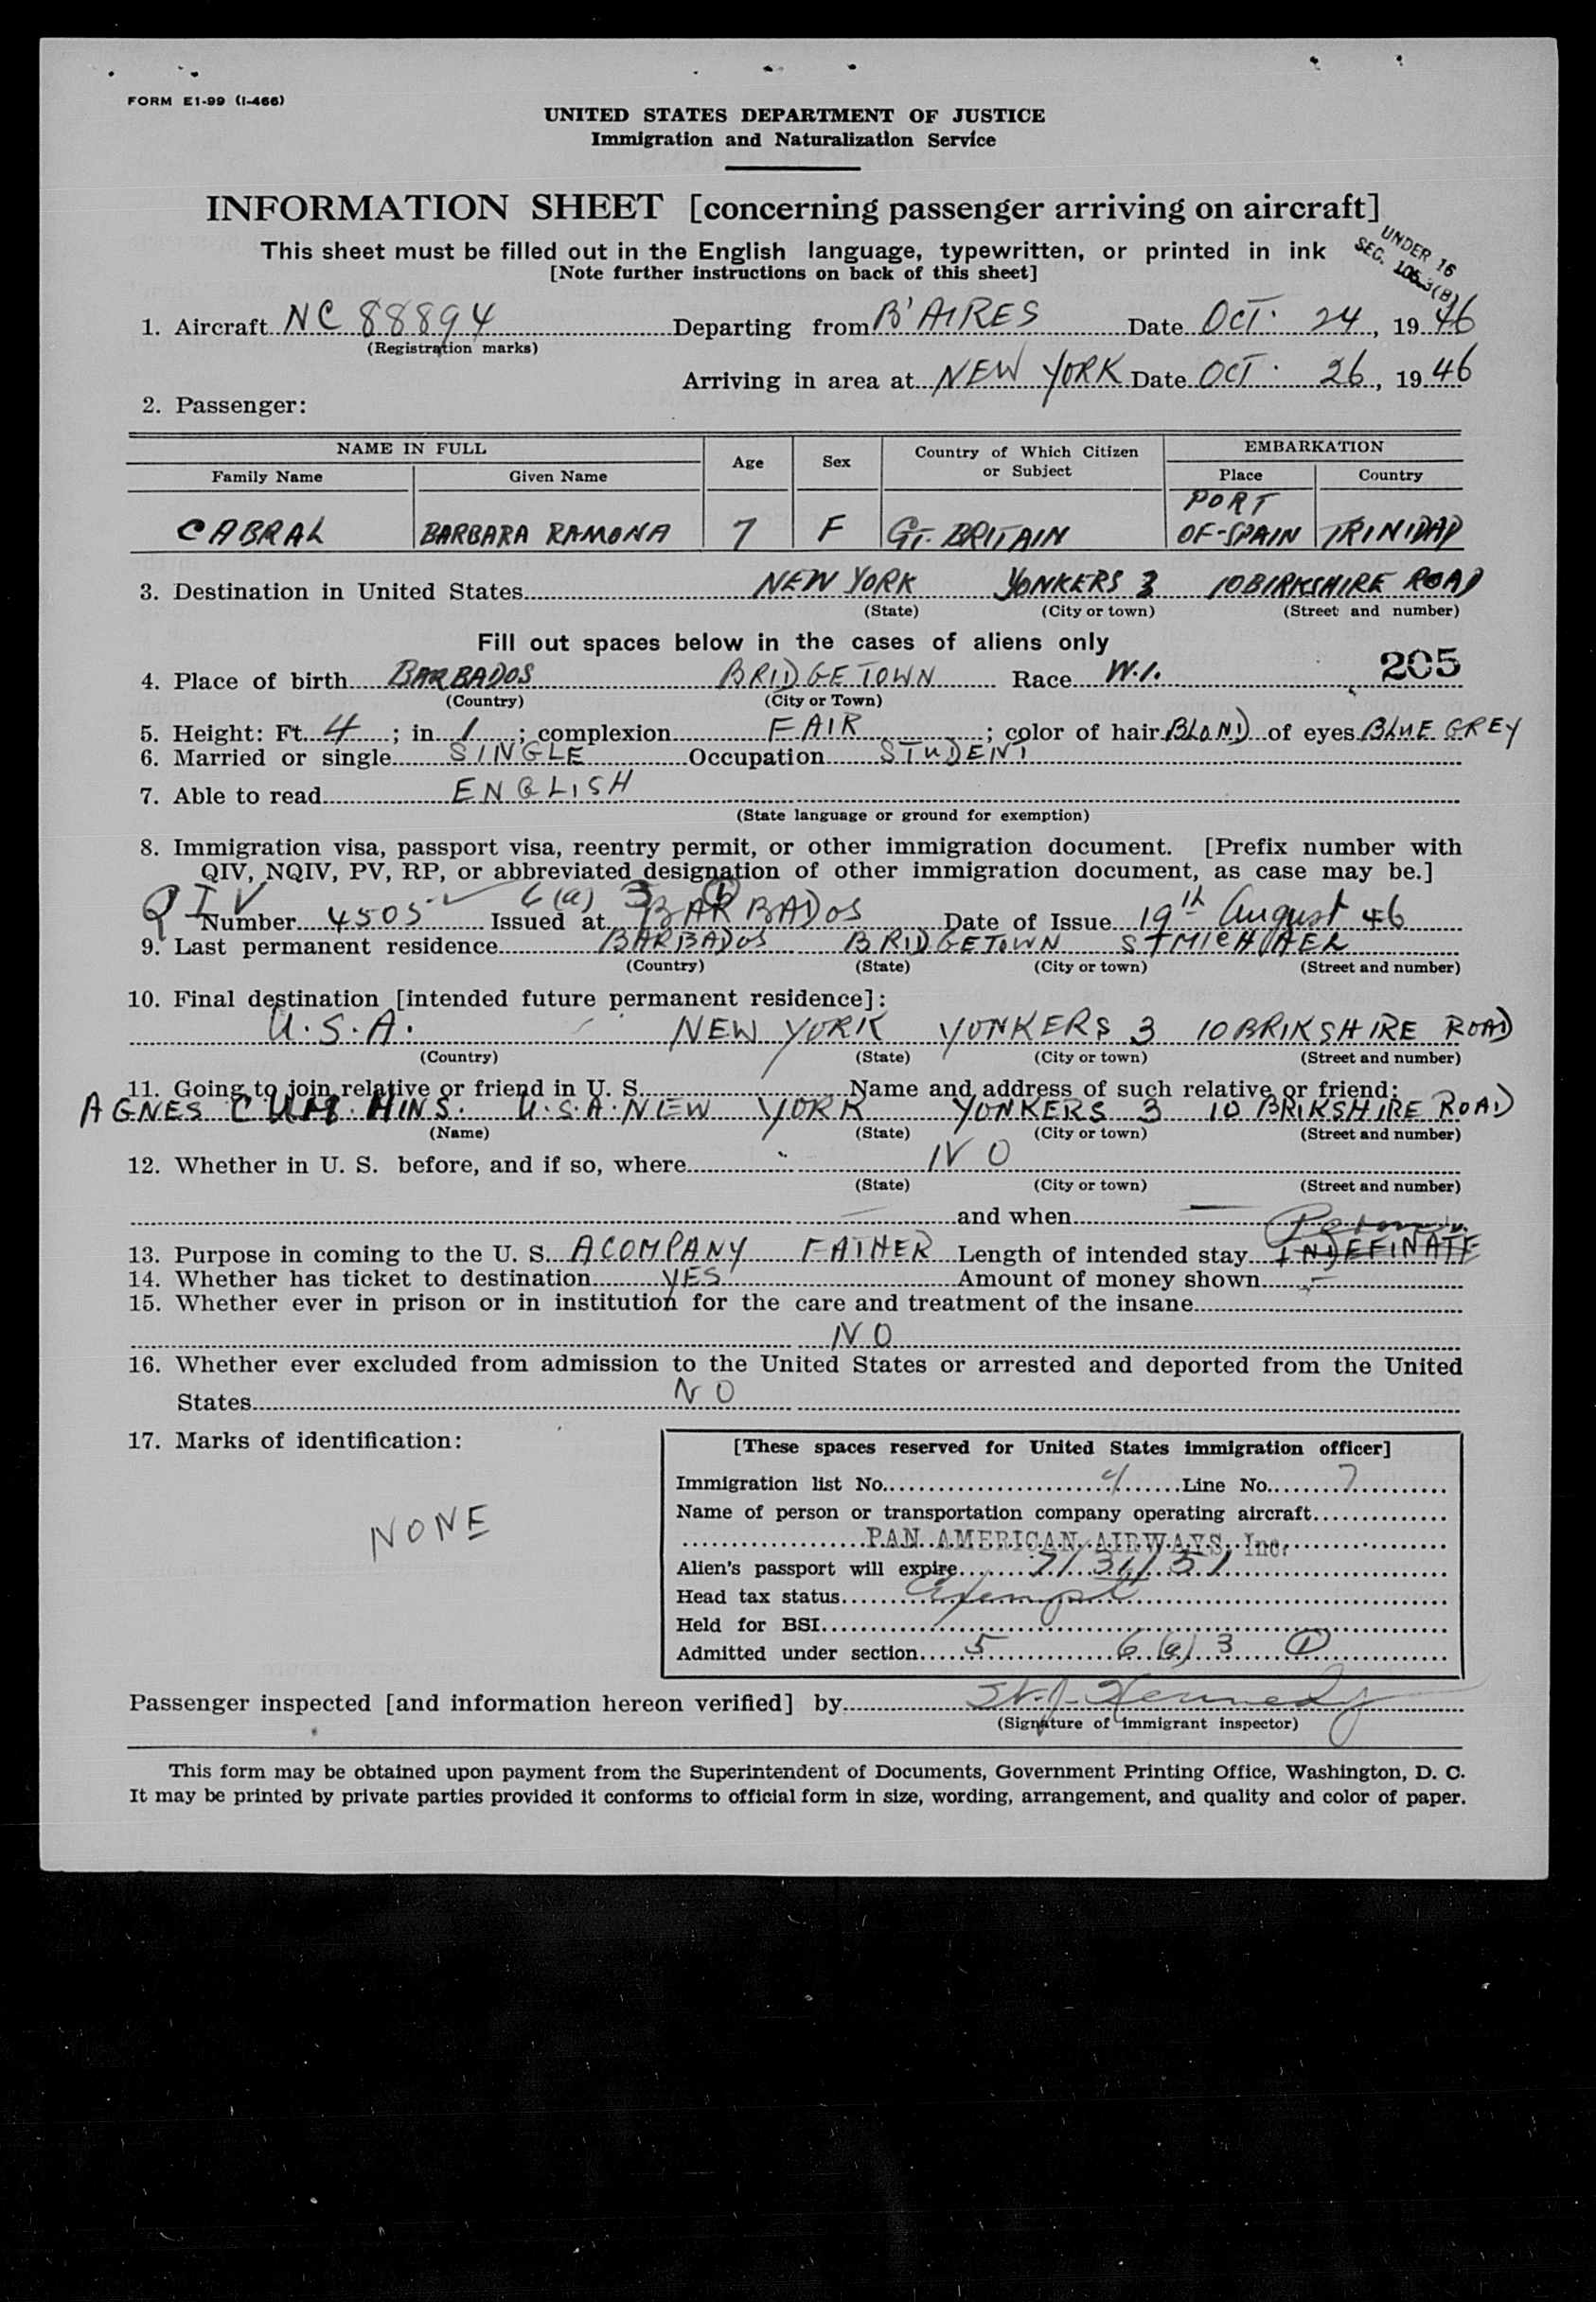 FORM E1-99 (I-466)
UNITED STATES DEPARTMENT OF JUSTICE
Immigration and Naturalization Service
INFORMATION SHEET [concerning passenger arriving on aircraft]
This sheet must be filled out in the English language, typewritten, or printed in ink
[Note further instructions on back of this sheet]
UNDER 16
SEC. 105.3(B)
1. Aircraft NC 88894 Departing from B'AIRES Date OCT. 24, 1946
(Registration marks)
Arriving in area at NEW YORK Date OCT. 26, 1946
2. Passenger:
NAME IN FULL Age Sex Country of Which Citizen or Subject EMBARKATION
Family Name Given Name Place Country
CABRAL BARBARA RAMONA 7 F GT. BRITAIN PORT OF-SPAIN TRINIDAD
3. Destination in United States NEW YORK YONKERS 3 10 BIRKSHIRE ROAD
(State) (City or town) (Street and number)
Fill out spaces below in the cases of aliens only
4. Place of birth BARBADOS BRIDGETOWN Race W.I. 205
(Country) (City or Town)
5. Height: Ft. 4; in 1; complexion FAIR; color of hair BLOND of eyes BLUE GREY
6. Married or single SINGLE Occupation STUDENT
7. Able to read ENGLISH
(State language or ground for exemption)
8. Immigration visa, passport visa, reentry permit, or other immigration document. [Prefix number with
QIV, NQIV, PV, RP, or abbreviated designation of other immigration document, as case may be.]
QIV 6(a) 3 (1)
Number 4505 Issued at BARBADOS Date of Issue 19th August 46
9. Last permanent residence BARBADOS BRIDGETOWN ST MICHAEL
(Country) (State) (City or town) (Street and number)
10. Final destination [intended future permanent residece]:
U.S.A. NEW YORK YONKERS 3 10 BRIKSHIRE ROAD
(Country) (State) (City or town) (Street and number)
11. Going to join relative or friend in U. S. Name and address of such relative or friend:
AGNES CUMMINS. U.S.A. NEW YORK YONKERS 3 10 BRIKSHIRE ROAD
(Name) (State) (City or town) (Street and number)
12. Whether in U. S. before, and if so, where NO
(State) (City or town) (Street and number)
and when
13. Purpose in coming to the U. S. ACOMPANY FATHER Length of intended stay INDEFINATE
14. Whether has ticket to destination YES Amount of money shown —
15. Whether ever in prison or in institution for the care and treatment of the insane
NO
16. Whether ever excluded from admission to the United States or arrested and deported from the United
States NO
17. Marks of identification:
NONE
[These spaces reserved for United States immigration officer]
Immigration list No. 4 Line No. 7
Name of person or transportation company operating aircraft
PAN AMERICAN AIRWAYS, Inc.
Alien's passport will expire 7/31/51
Head tax status Exempt
Held for BSI
Admitted under section 5 6(a) 3 (1)
Passenger inspected [and information hereon verified] by Kennedy
(Signature of immigrant inspector)
This form may be obtained upon payment from the Superintendent of Documents, Government Printing Office, Washington, D. C.
It may be printed by private parties provided it conforms to official form in size, wording, arrangement, and quality and color of paper.